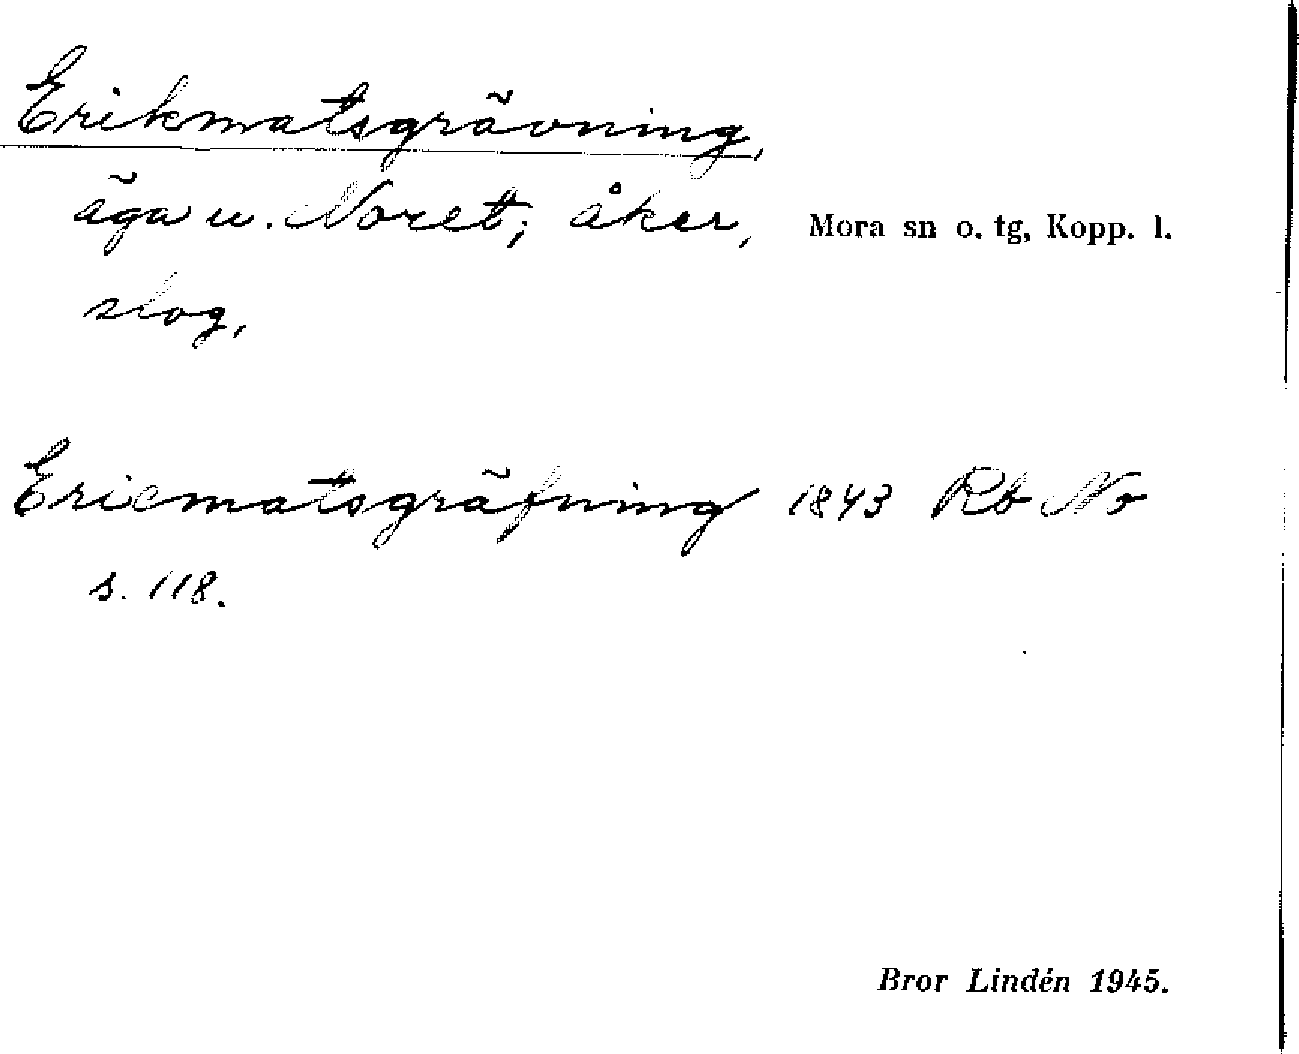 Erikmatsgrävning,
äga u. Noret; åker, Mora sn o. tg, Kopp. l.
slog,
Ericmatsgräfning 1843 Rb No
s. 118.
Bror Lindén 1945.